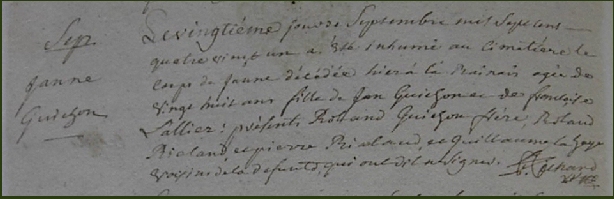 Sep.
Janne
Guichon
Le vingtième jour de Septembre mil Sept cent
quatre vingt un a été inhumé au cimetière le
corps de Janne décédée hier à la agée de
vingt huit ans fille de Jan Guichon et de francoise
Lallier : présents Rolland Guichon frère, Roland
Rieland et pierre Rieland, et Guillaume la haye
voisins de la defunte, qui ont dit ne signer.